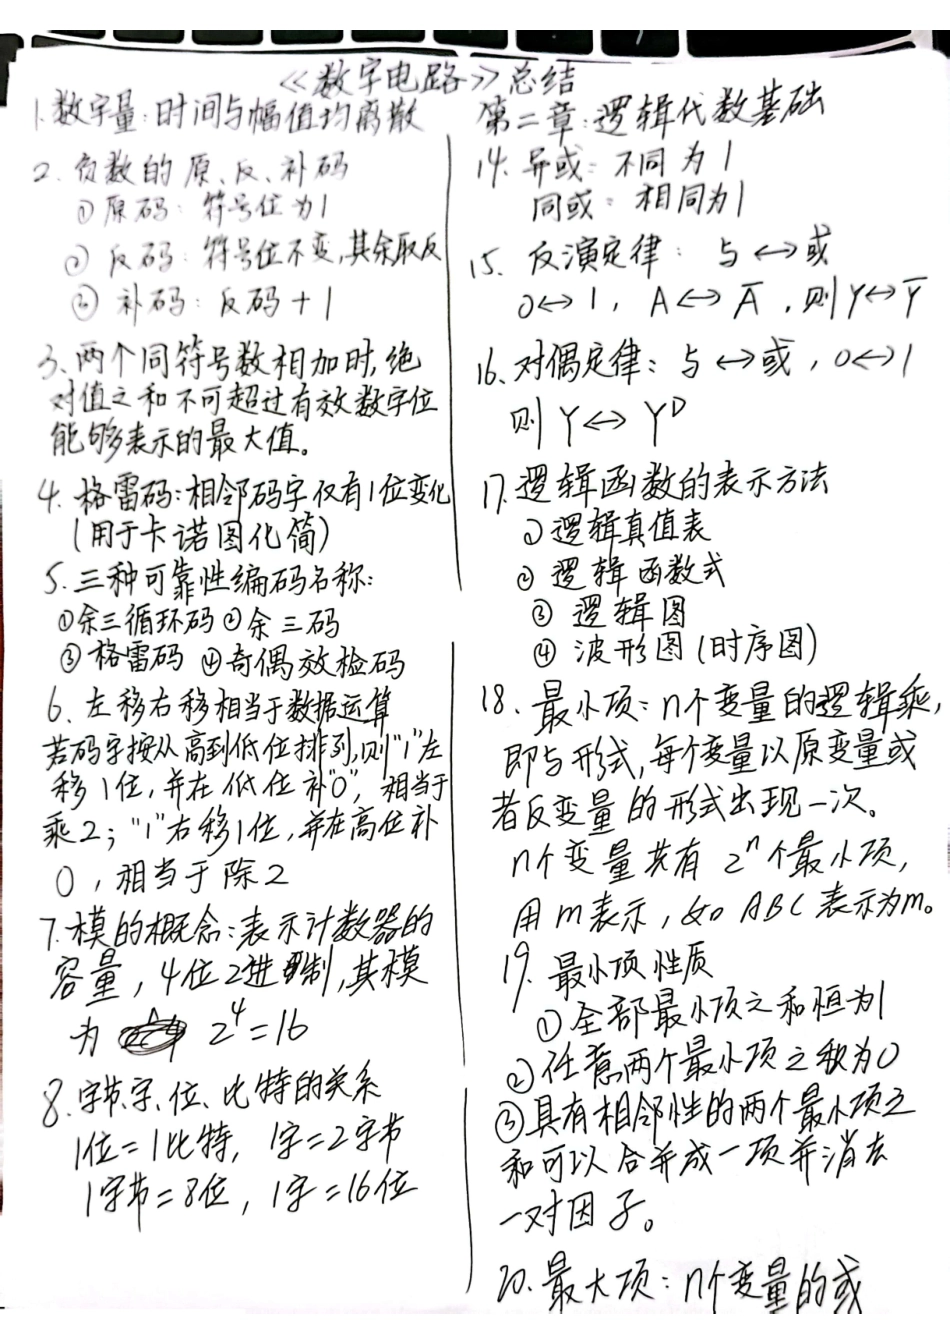 《数字电路》总结
1.数字量:时间与幅值均离散
2.负数的原、反、补码
①原码:符号位为1
②反码:符号位不变,其余取反
③补码:反码+1
3.两个同符号数相加时,绝
对值之和不可超过有效数字位
能够表示的最大值。
4.格雷码:相邻码字仅有1位变化
(用于卡诺图化简)
5.三种可靠性编码名称:
①余三循环码②余三码
③格雷码 ④奇偶效检码
6、左移右移相当于数据运算
若码字按从高到低位排列,则"1"左
移1位,并在低位补"0",相当于
乘2;"1"右移1位,并在高位补
0,相当于除2
7.模的概念:表示计数器的
容量,4位2进制,其模
为 2⁴=16
8.字节、字、位、比特的关系
1位=1比特, 1字=2字节
1字节=8位, 1字=16位
第二章:逻辑代数基础
14.异或:不同为1
同或:相同为1
15、反演定律: 与↔或
0↔1, A↔A̅,则Y↔Y̅
16、对偶定律:与↔或,0↔1
则 Y↔Yᴰ
17.逻辑函数的表示方法
①逻辑真值表
②逻辑函数式
③逻辑图
④波形图(时序图)
18、最小项:n个变量的逻辑乘,
即与形式,每个变量以原变量或
者反变量的形式出现一次。
n个变量共有2ⁿ个最小项,
用m表示,如 ABC表示为m。
19.最小项性质
①全部最小项之和恒为1
②任意两个最小项之积为0
③具有相邻性的两个最小项之
和可以合并成一项并消去
一对因子。
20.最大项:n个变量的或